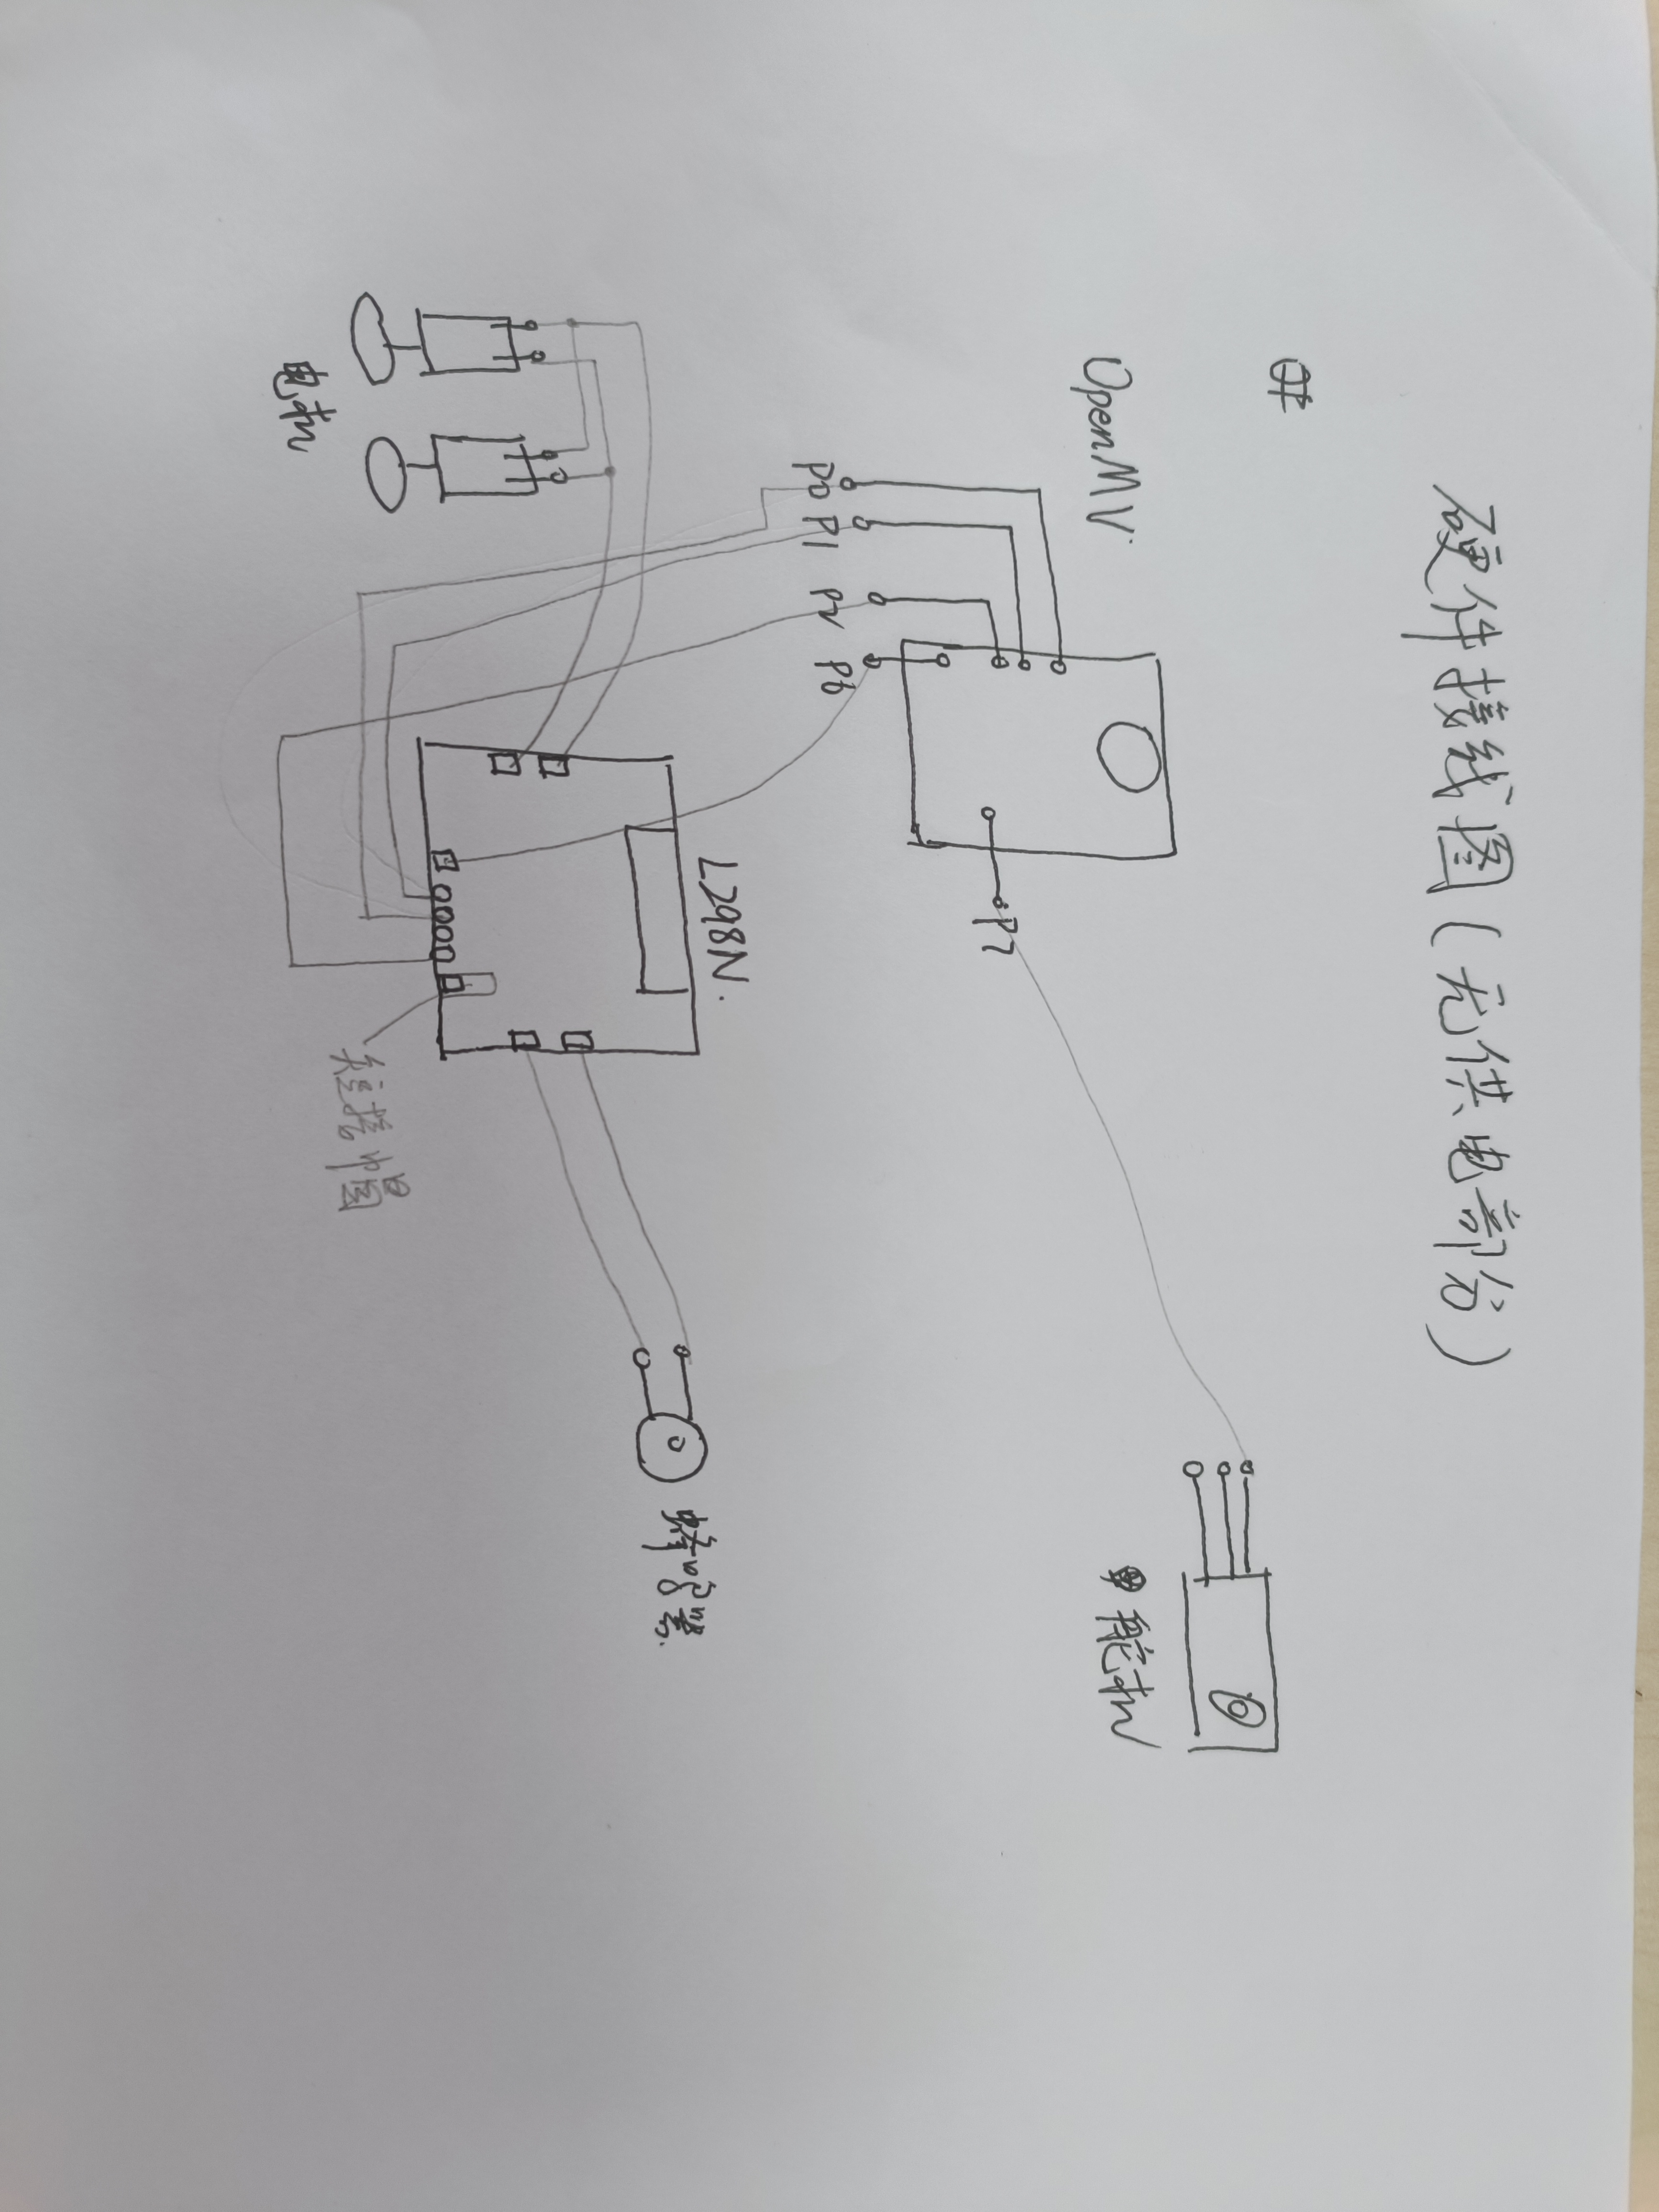 硬件接线图(无供电部分)
OpenMV.
P0
P1
P2
P6
P7
舵机
电机
L298N.
短接帽
蜂鸣器